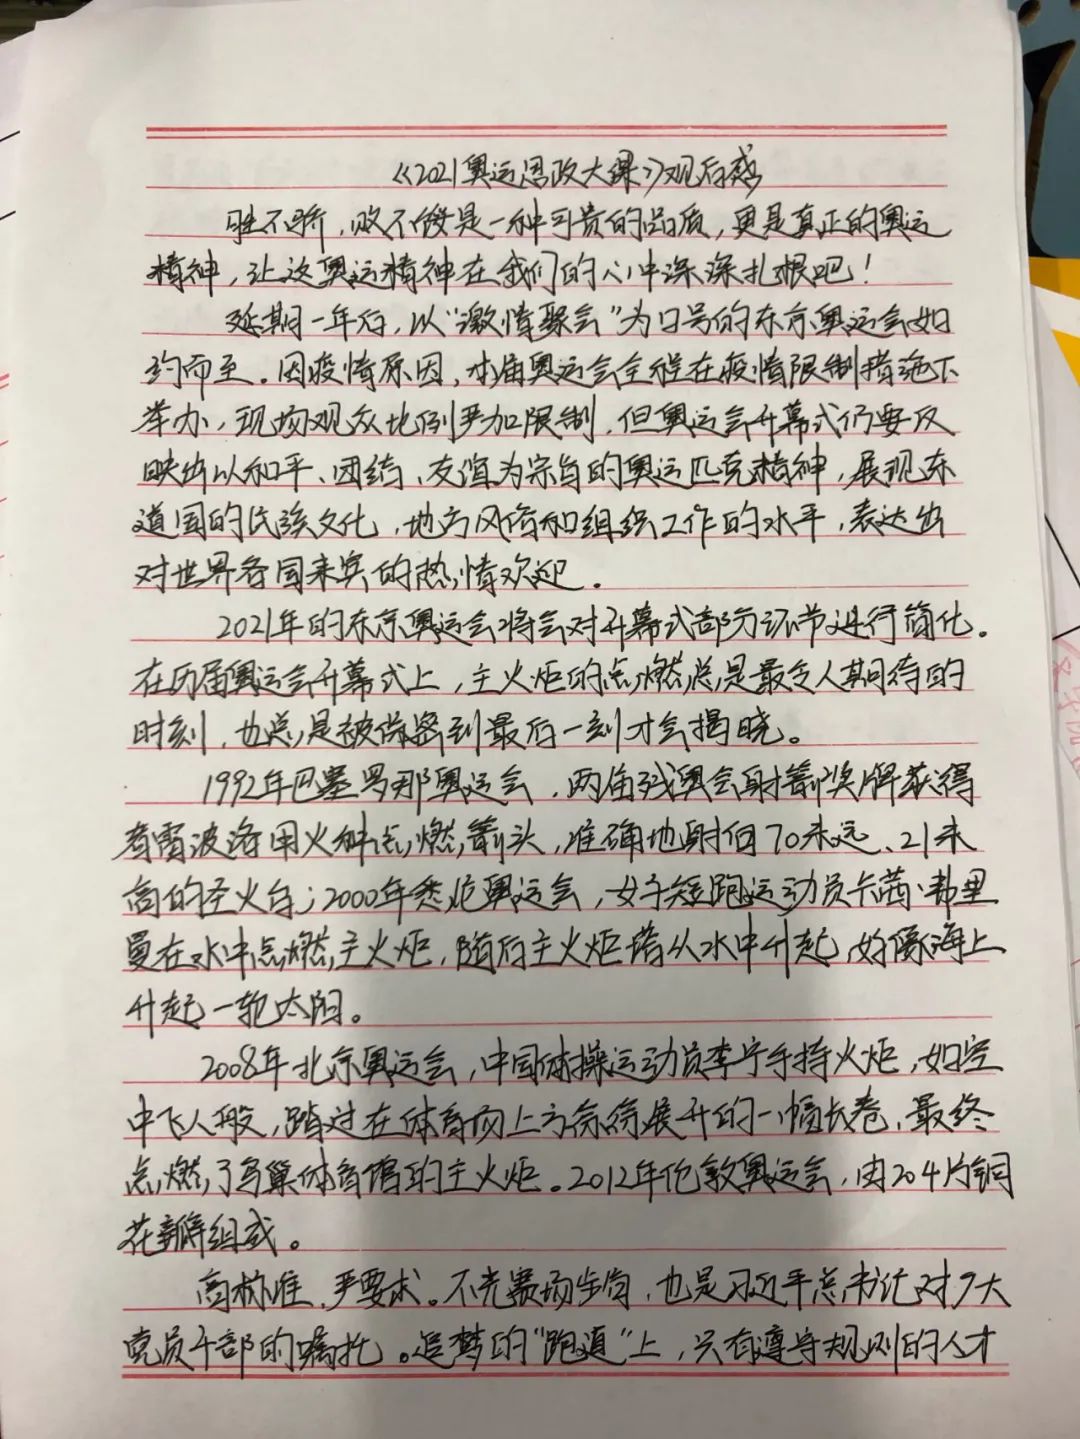 《2021奥运思政大课》观后感
胜不骄，败不馁是一种可贵的品质，更是真正的奥运
精神，让这奥运精神在我们的心中深深扎根吧！
延期一年后，以“激情聚会”为口号的东京奥运会如
约而至。因疫情原因，本届奥运会全程在疫情限制措施下
举办，现场观众比例严加限制，但奥运会开幕式仍要反
映出以和平、团结、友谊为宗旨的奥运匹克精神，展现东
道国的民族文化，地方风俗和组织工作的水平，表达出
对世界各国来宾的热情欢迎。
2021年的东京奥运会将会对开幕式部分环节进行简化。
在历届奥运会开幕式上，主火炬的点燃总是最令人期待的
时刻，也总是被保密到最后一刻才会揭晓。
1992年巴塞罗那奥运会，两届残奥会射箭奖牌获得
者雷波洛用火种点燃箭头，准确地射向70米远、21米
高的圣火台；2000年悉尼奥运会，女子短跑运动员卡茜·弗里
曼在水中点燃主火炬，随后主火炬塔从水中升起，好像海上
升起一轮太阳。
2008年北京奥运会，中国体操运动员李宁手持火炬，如空
中飞人般，踏过在体育场上方徐徐展开的一幅长卷，最终
点燃了鸟巢体育馆的主火炬。2012年伦敦奥运会，由204片铜
花瓣组成。
高标准、严要求。不光赛场步向，也是习近平总书记对广大
党员干部的嘱托。追梦的“跑道”上，只有遵守规则的人才